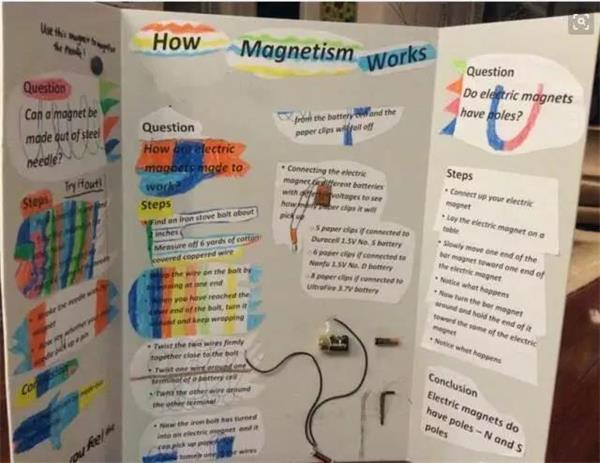 How Magnetism Works
Use this magnet to
the needle!
Question
Can a magnet be
made out of steel
needle?
Steps
Try it out!
Question
How are electric
magnets made to
work?
Steps
Find an iron stove bolt about
inches
Measure off 6 yards of cotton
covered coppered wire
the wire on the bolt by
at one end
When you have reached the
other end of the bolt, turn it
around and keep wrapping
Twist the two wires firmly
together close to the bolt
Twist one wire around one
terminal of a battery cell
Twist the other wire around
the other terminal
Now the iron bolt has turned
into an electric magnet and it
can pick up paper
wires
from the battery cell and the
paper clips will fall off
Connecting the electric
magnet to different batteries
with different voltages to see
how many paper clips it will
pick up
5 paper clips if connected to
Duracell 1.5V No. 5 battery
6 paper clips if connected to
Nanfu 1.5V No. D battery
8 paper clips if connected to
UltraFire 3.7V battery
Question
Do electric magnets
have poles?
Steps
• Connect up your electric
magnet
• Lay the electric magnet on a
table
• Slowly move one end of the
bar magnet toward one end of
the electric magnet
• Notice what happens
• Now turn the bar magnet
around and hold the end of it
toward the same of the electric
magnet
• Notice what happens
Conclusion
Electric magnets do
have poles – N and S
poles